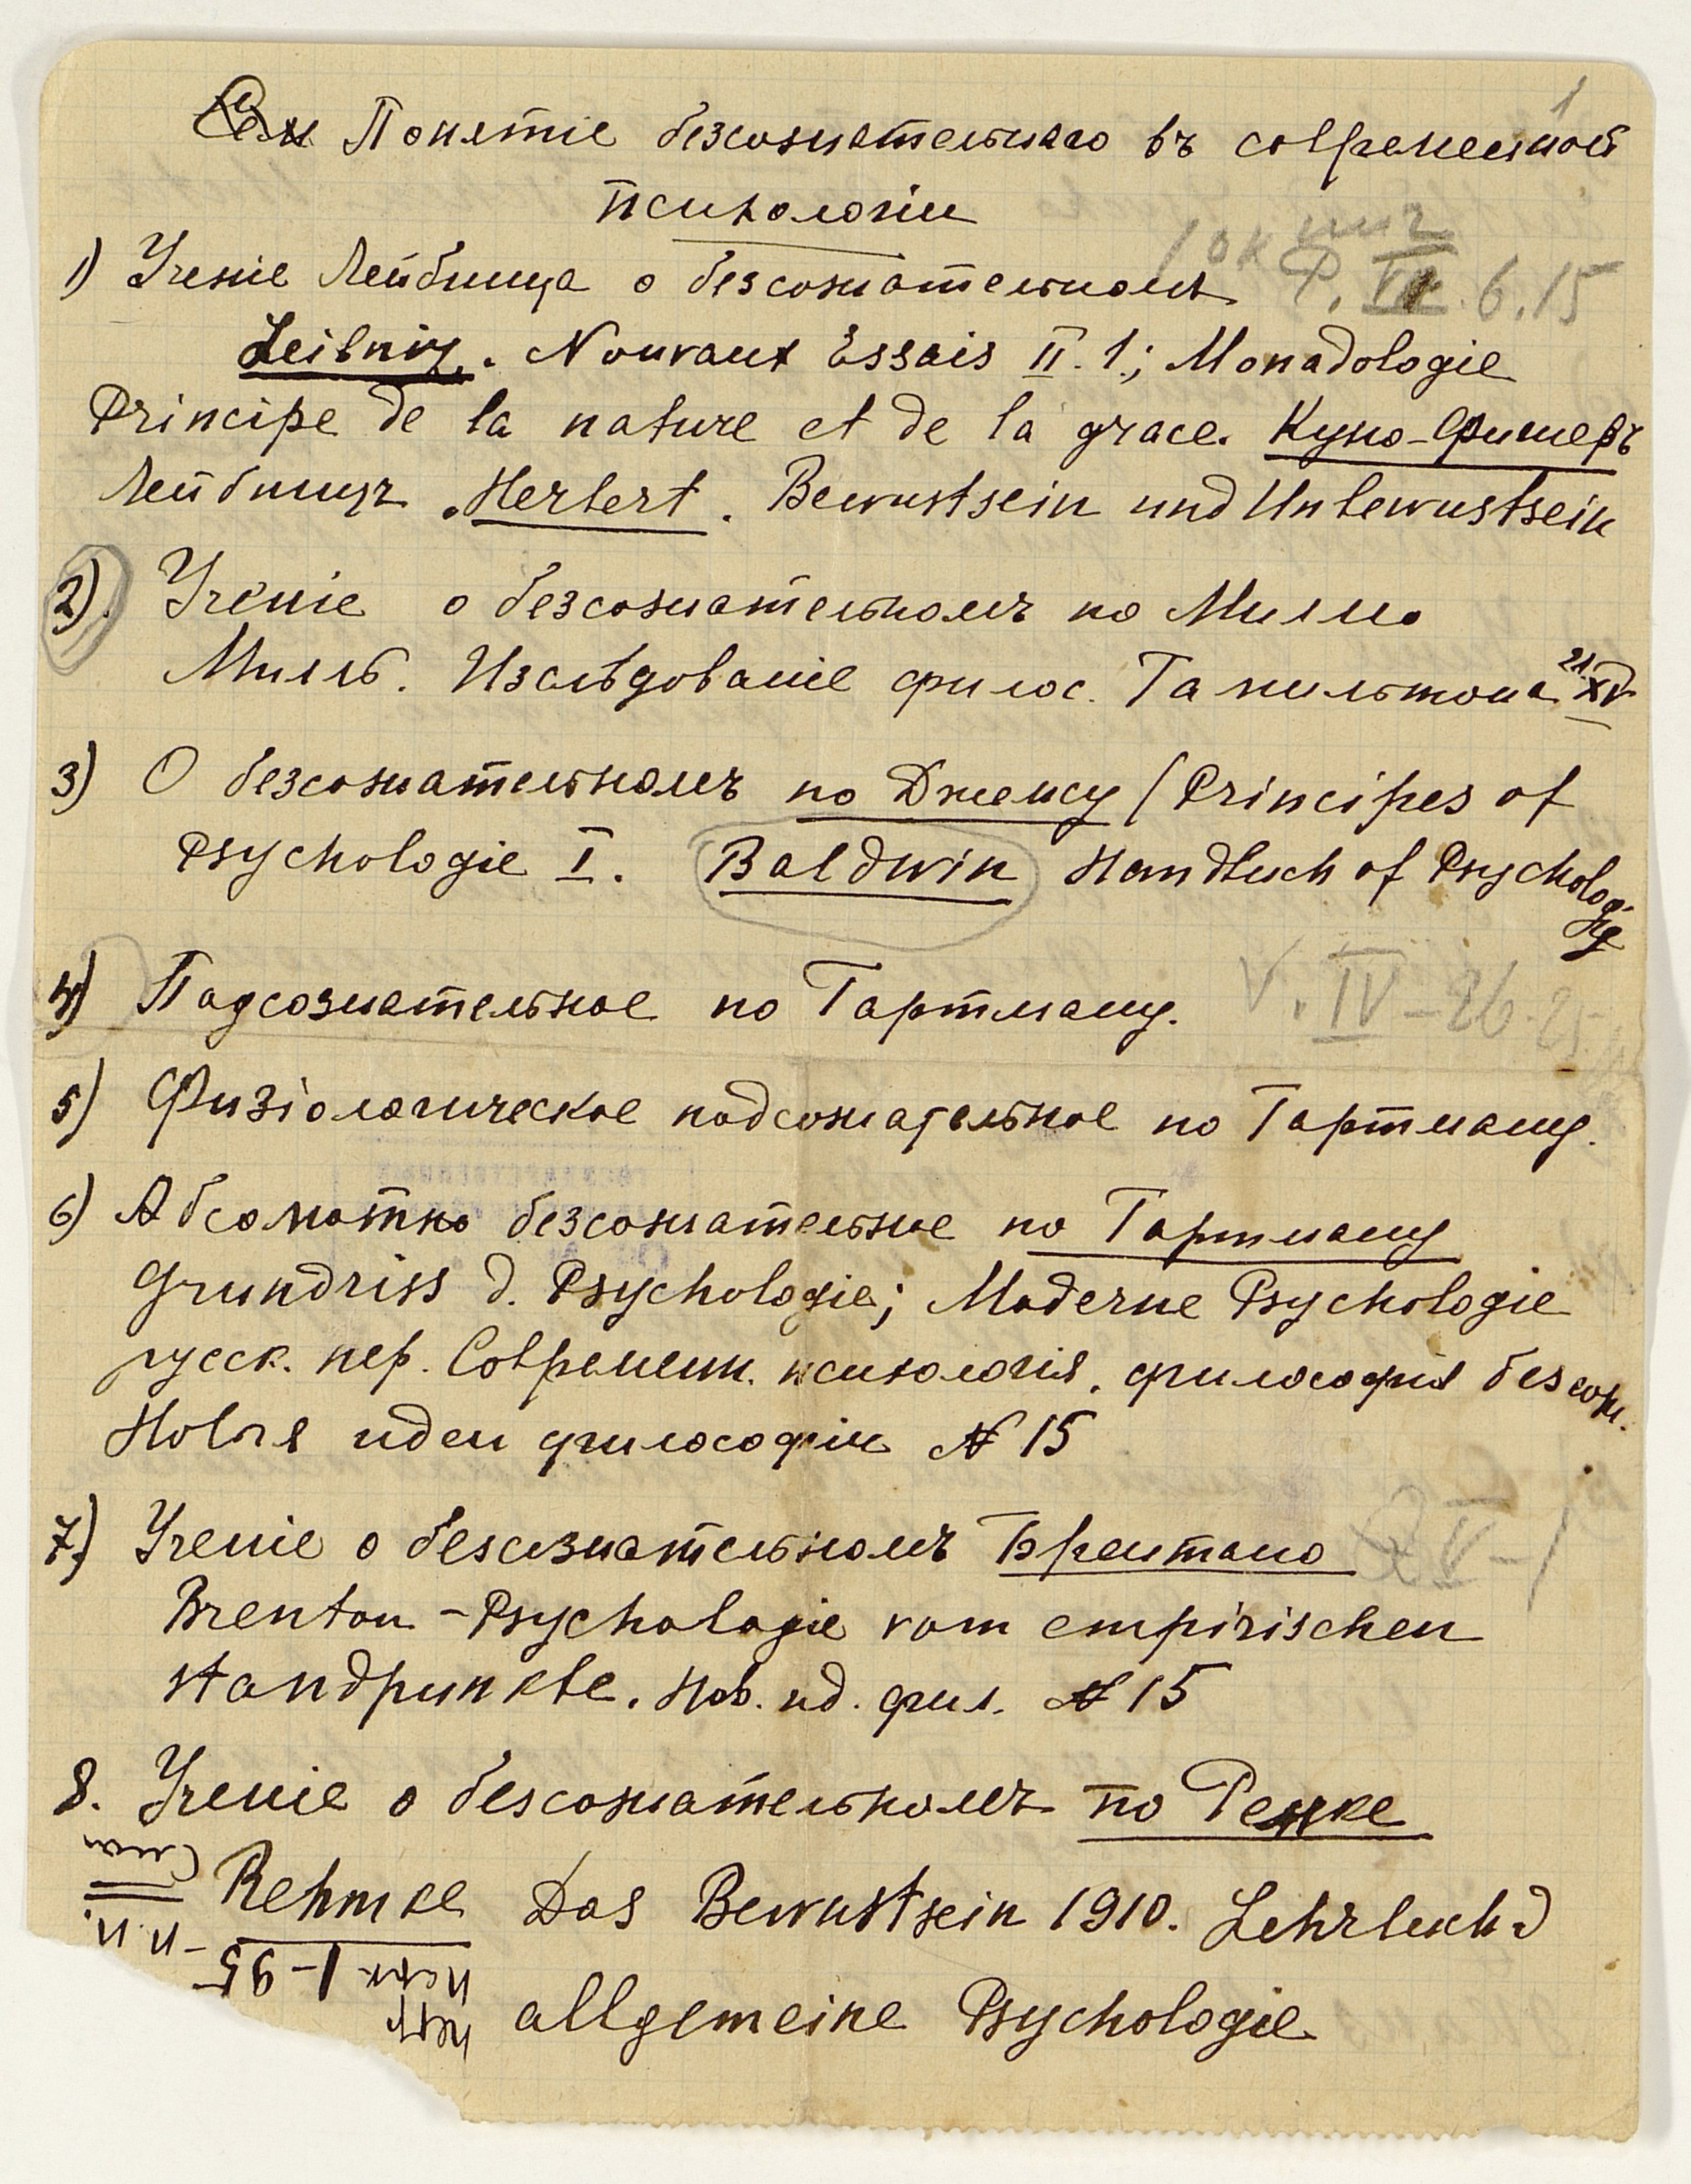 Понятіе безсознательнаго въ современной
психологіи
1
1) Ученіе Лейбница о безсознательномъ
VII. 6. 15
Leibniz. Nouvaux Essais II. 1.; Monadologie
Principe de la nature et de la grace. Куно-Фишеръ
Лейбницъ. Herbert. Bewustsein und Unbewustsein
2). Ученіе о безсознательномъ по Миллю
Милль. Изслѣдованіе филос. Гамильтона XV
3) О безсознательномъ по Джемсу (Principes of
Psychologie I. Baldwin Handbuch of Psychology
4) Подсознательное по Гартману.
V. IV – 26.
5) Физіологическое подсознательное по Гартману.
6) Абсолютно безсознательное по Гартману
Grundriss d. Psychologie; Moderne Psychologie
русск. пер. Современ. психологія. философія безсозн.
Новыя идеи философіи № 15
7) Ученіе о безсознательномъ Брентано
V – 1
Brentan – Psychologie vom empirischen
standpunkte. Нов. ид. фил. № 15
8. Ученіе о безсознательномъ по Ремке
Rehmke Das Bewustsein 1910. Lehrbuch d
1 – 95
allgemeine Psychologie